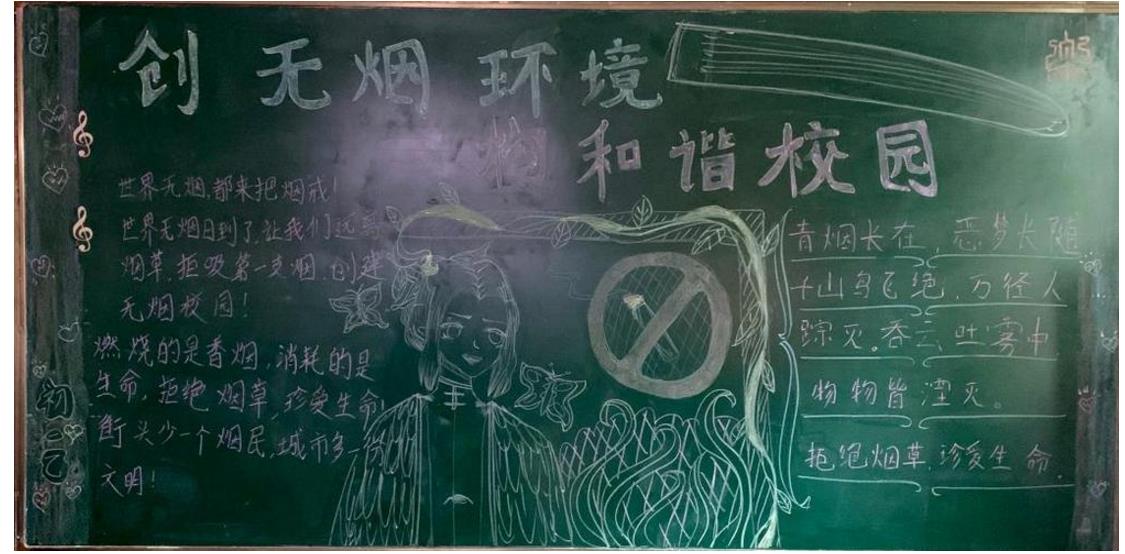 创无烟环境
构和谐校园
世界无烟,都来把烟戒!
世界无烟日到了,让我们远离
烟草,拒吸第一支烟,创建
无烟校园!
燃烧的是香烟,消耗的是
生命,拒绝烟草,珍爱生命!
街头少一个烟民,城市多一份
文明!
初
二
乙
青烟长在,恶梦长随
千山鸟飞绝,万径人
踪灭。吞云吐雾中
物物皆湮灭。
拒绝烟草,珍爱生命。